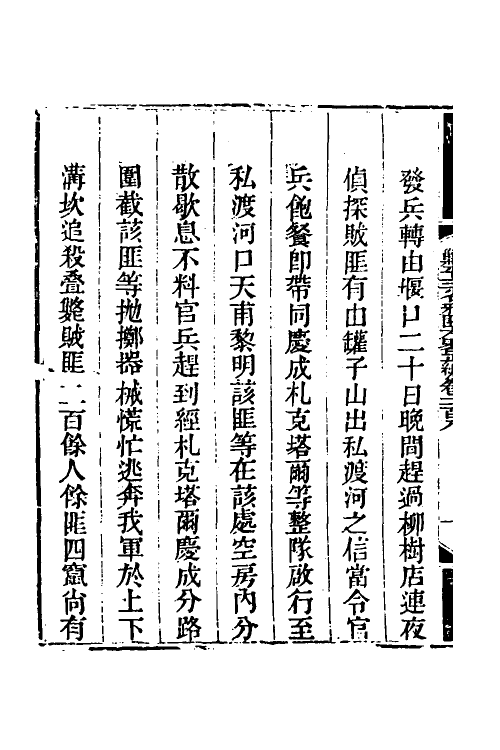 發兵轉由堰口二十日晚間趕過柳樹店連夜
偵探賊匪有由鑵子山出私渡河之信當令官
兵飽餐卽帶同慶成札克塔爾等整隊啟行至
私渡河口天甫黎明該匪等在該處空房內分
散歇息不料官兵趕到經札克塔爾慶成分路
圍截該匪等拋擲器械慌忙逃奔我軍於上下
溝坎追殺叠斃賊匪二百餘人餘匪四竄尙有